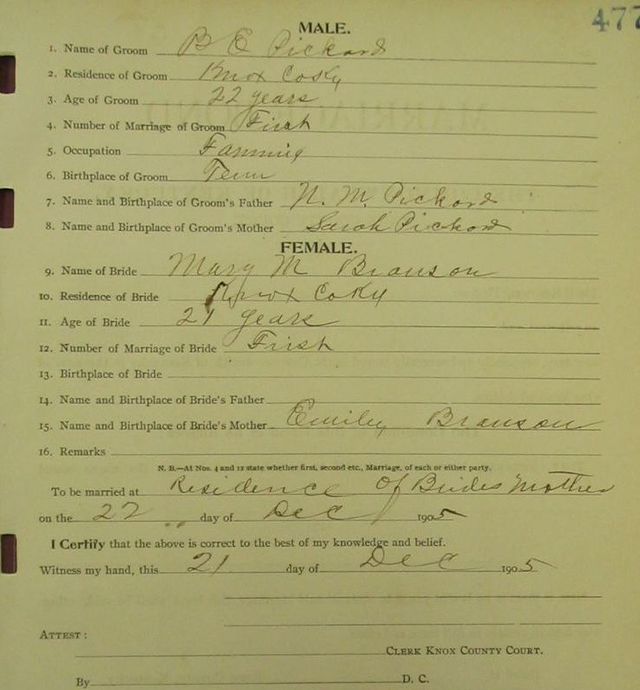 477
MALE.
1. Name of Groom B E Pickard
2. Residence of Groom Knox Co Ky
3. Age of Groom 22 years
4. Number of Marriage of Groom First
5. Occupation Farming
6. Birthplace of Groom Tenn
7. Name and Birthplace of Groom's Father N. M. Pickard
8. Name and Birthplace of Groom's Mother Sarah Pickard
FEMALE.
9. Name of Bride Mary M Branson
10. Residence of Bride Knox Co Ky
11. Age of Bride 21 years
12. Number of Marriage of Bride First
13. Birthplace of Bride
14. Name and Birthplace of Bride's Father
15. Name and Birthplace of Bride's Mother Emily Branson
16. Remarks
N. B.—At Nos. 4 and 12 state whether first, second etc., Marriage, of each or either party.
To be married at Residence Of Brides Mother
on the 22 day of Dec 1905
I Certify that the above is correct to the best of my knowledge and belief.
Witness my hand, this 21 day of Dec 1905
ATTEST:
CLERK KNOX COUNTY COURT.
By D. C.